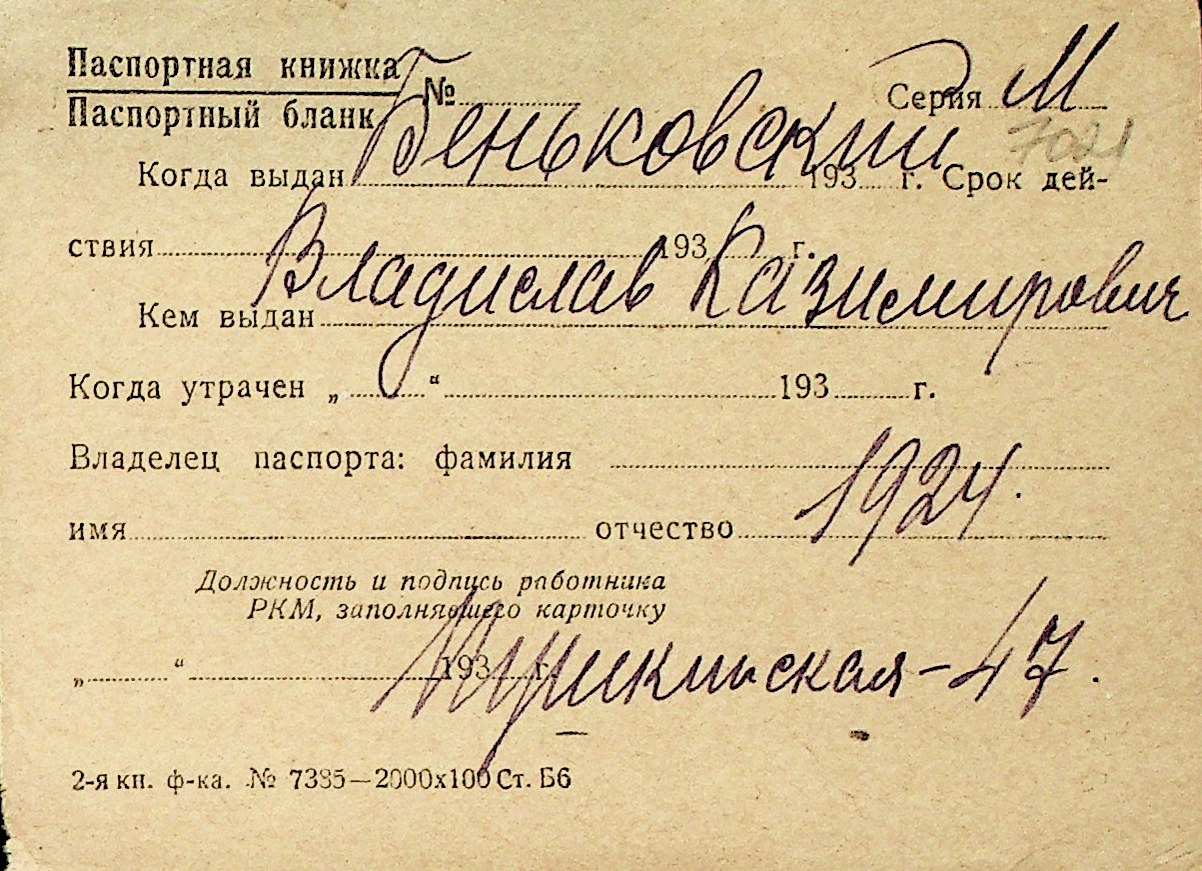 Паспортная книжка
Паспортный бланк №
Серия М
7021
Беньковский
Когда выдан 193 г. Срок дей-
ствия 193 г.
Владислав Казимирович
Кем выдан
Когда утрачен „ “ 193 г.
Владелец паспорта: фамилия
1924.
имя отчество
Должность и подпись работника
РКМ, заполнявшего карточку
Пушкинская-47.
„ “ 193 г.
2-я кн. ф-ка. № 7385—2000х100 Ст. Б6